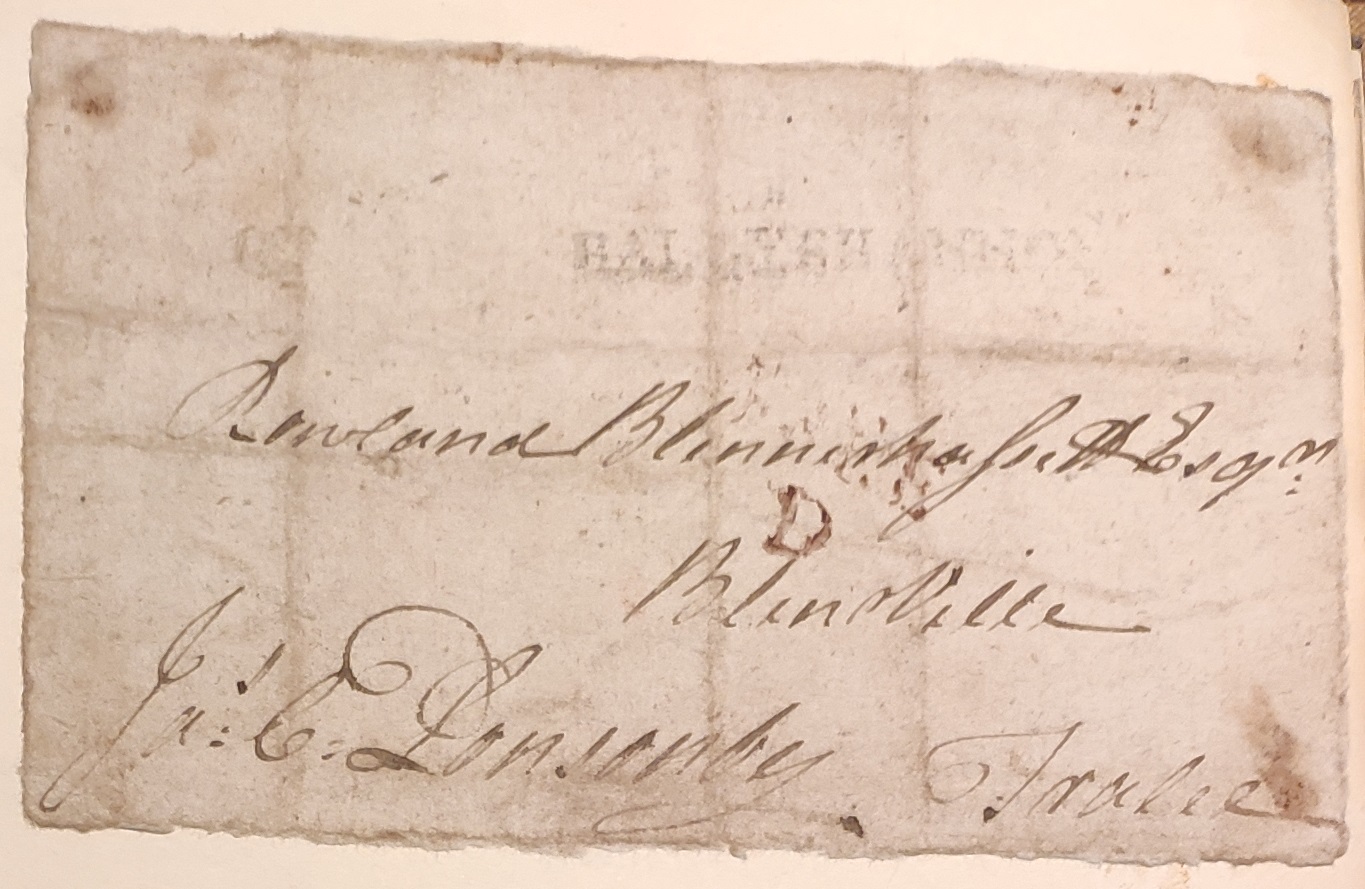 Rowland Blennerhassett Esqr.
D
BlenVille
Jas. C. Ponsonby
Tralee